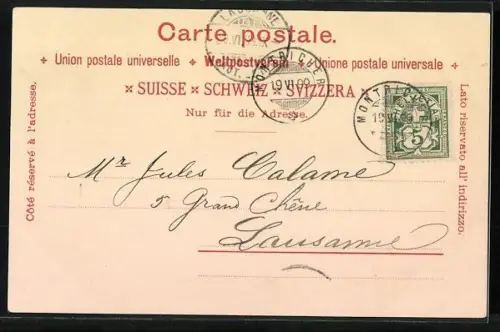 Carte postale.
Union postale universelle + Weltpostverein + Unione postale universale
SUISSE × SCHWEIZ × SVIZZERA
Nur für die Adresse.
Côté réservé à l'adresse.
Lato riservato all' indirizzo.
LAUSANNE
MONTRICHER
19 VI 99
MONTRICHER
19 VI 99
5
Mr Jules Calame
5 Grand Chêne
Lausanne